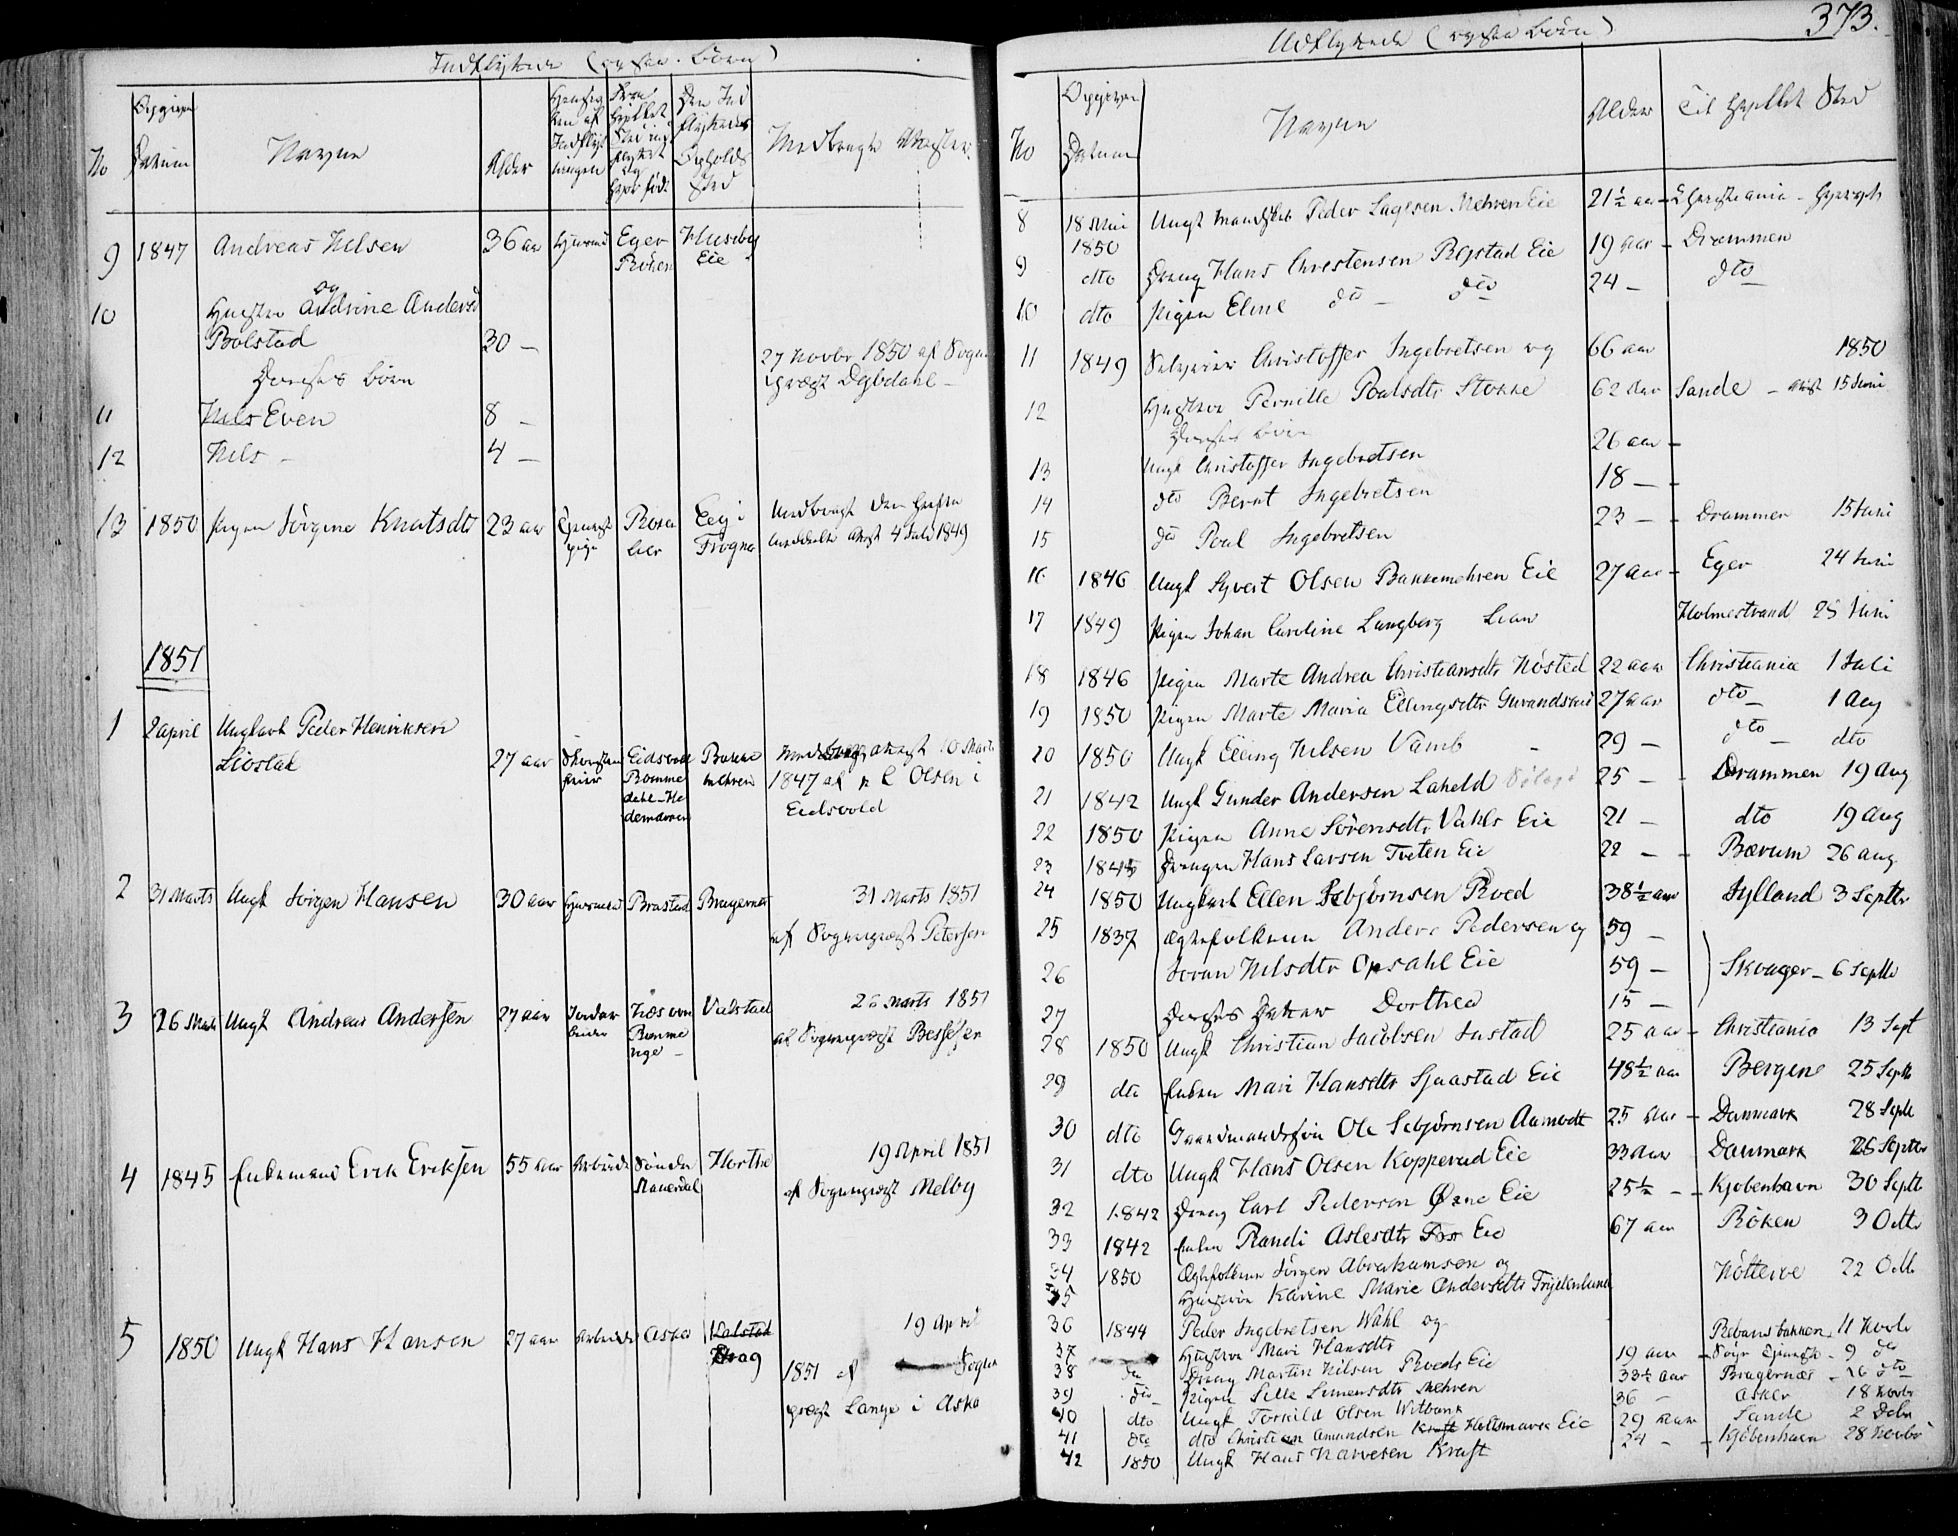 373.
Indflyttede (ogsaa Børn)
No
Opgiven Datum
Navne
Alder
Medbragte Attester
9 1847 Andreas Nilsen 36 aar Huusmd Eger Huseby
Røken Eie
og
10 Hustru Andrine Andersd
Bolstad 30 –
27 Novbr 1850 af Sogne
præst Dybdahl –
Deres Børn
11 Nils Even 8 –
12 Nils – 4 –
13 1850 Pigen Jørgine Knutsdtr 23 aar
Eeg i
Frogner
4 Juli 1849
1851
1 2 April Ungkarl Peder Henriksen
Liostak 27 aar Eidsvold Bakke
mehren
10 Marts
1847 af Olsen i
Eidsvold
2 31 Marts Ungk Jørgen Hansen 30 aar Huusmd Brastad Bragernes 31 Marts 1851
af Sognepræst Petersen
3 26 Marts Ungk Andreas Andersen 27 aar Næs Valstad 26 Marts 1851
Romme
rige –
af Sognepræst Bessesen
4 1845 Enkemand Erik Eriksen 55 aar Arbeide Søndre Horthe 19 April 1851
af Sognepræst Melby
5 1850 Ungk Hans Hansen 27 aar Arbeide Asker Valstad 19 April
1851 af Sogne
præst Lange i Asker
Udflyttede (ogsaa Børn)
No
Opgiven Datum
Navne
Alder
Til hvilket Sted
8 18 Mai 1850 Peder Mehren Eie 21½ aar – Christiania –
9 dto Dreng Hans Christensen Rejstad Eie 19 aar – Drammen
10 dto Pigen Eline dto – dto 24 – dto
11 1849 Selveier Christoffer Ingebretsen og 66 aar 1850
12 Hustru Pernille Poulsdtr Stokke 62 aar Sande – 15 Juni
Deres Børn
13 Ungk Christoffer Ingebretsen 26 aar –
14 dto Bernt Ingebretsen 18 – –
15 dto Poul Ingebretsen 23 – – Drammen 15 Juni
16 1846 Ungk Syvert Olsen Bakkemehren Eie 27 aar – Eger 24 Juni
17 1849 Pigen Johan Caroline Langberg Lian Holmestrand 25 Juni
18 1846 Pigen Marte Andrea Christiansdtr Nøsted 22 aar Christiania 1 Juli
19 1850 Pigen Marte Maria Ellingsdtr 27 aar dto – 1 Aug
20 1850 Ungk Elling Nilsen Vamb – 29 – dto – dto
21 1842 Ungk Gunder Andersen Laheld 25 – – Drammen 19 Aug
22 1850 Pigen Anne Sørensdtr Vahls Eie 21 – dto 19 Aug
23 1845 Drengen Hans Larsen Tveten Eie 22 – – Bærum 26 Aug
24 1850 Ungkarl Ellen Sebjørnsen Roed 38½ aar Jylland 3 Septbr
25 1837 Ægtefolkene Anders Pedersen og 59 –
26 Joran Nilsdtr Opsahl Eie 59 – Skouger – 6 Septbr
27 Deres Datter Dorthea 15 –
28 1850 Ungk Christian Jacobsen Justad 25 aar – Christiania 13 Sept
29 dto Enken Mari Hansdtr Sjaastad Eie 48½ aar Bergene 25 Septb
30 dto Gaardmandssøn Ole Sebjørnsen Aamodt 25 aar – Danmark 28 Septb
31 dto Ungk Hans Olsen Kopperud Eie 33 aar – Danmark 26 Septbr
32 1842 Dreng Carl Pedersen Øvne Eie 25½ – – Kjøbenhavn 30 Septb
33 1842 Enken Randi Aslesdtr Fos Eie 67 aar Røken 3 Octbr
34 1850 Ægtefolkene Jørgen Abrahamsen og
35 Hustru Karine Marie Andersdtr Nøtterøe 22 Octb
36 1844 Peder Ingebretsen Wahl og
37 Hustru Mari Hansdtr 11 Novbr
38 dto Dreng Martin Nilsen Roeds Eie 19 aar – 9 dto
39 dto Pigen Sille Simensdtr Mehren 33½ aar Bragernæs – 16 dto
40 dto Ungk Torkild Olsen Witbank 36 – Asker 18 Novbr
41 dto dto Christian Amundsen Kraft Holtsmark Eie 29 aar Sande 2 Debr
42 1850 Ungk Hans Narvesen Kraft 24 – – Kjøbenhavn 28 Novbr